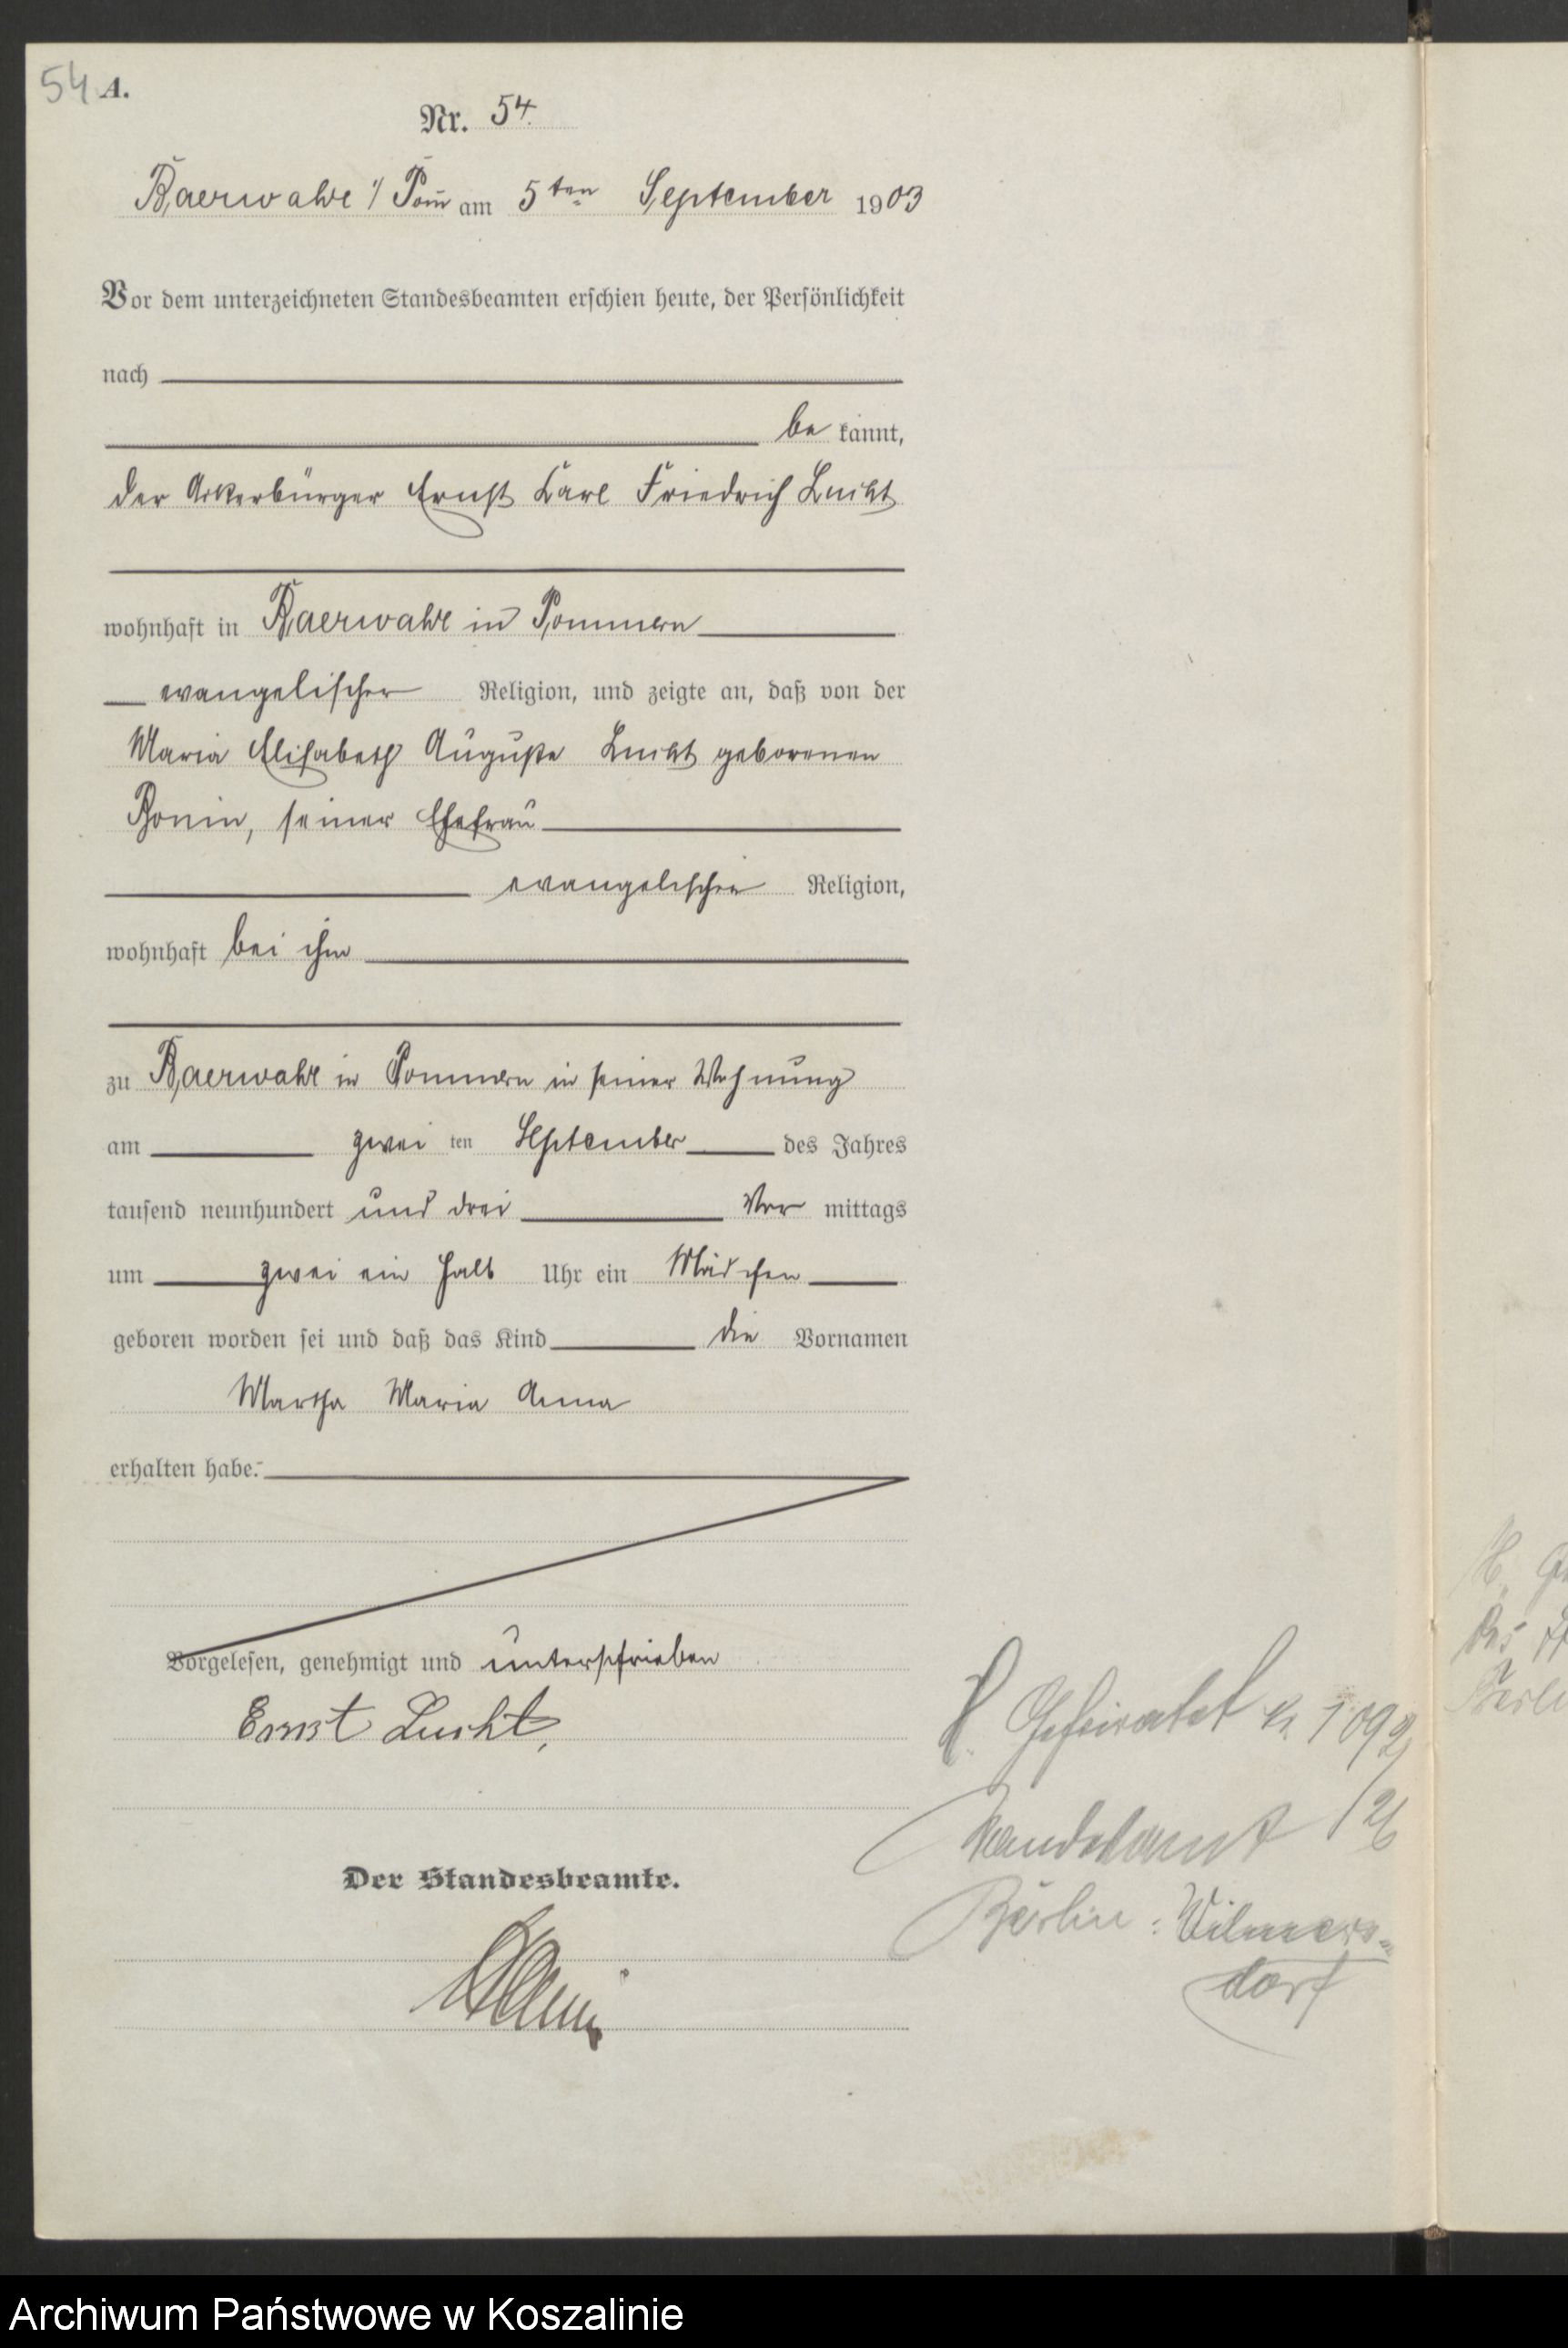 54 A.
Nr. 54.
Baerwalde i/Pom̄ am 5ten September 1903
Vor dem unterzeichneten Standesbeamten erschien heute, der Persönlichkeit
nach
be kannt,
der Ackerbürger Ernst Carl Friedrich Lucht
wohnhaft in Baerwalde in Pommern
evangelischer Religion, und zeigte an, daß von der
Maria Elisabeth Auguste Lucht geborenen
Bonin, seiner Ehefrau
evangelischer Religion,
wohnhaft bei ihm
zu Baerwalde in Pommern in seiner Wohnung
am zwei ten September des Jahres
tausend neunhundert und drei Vor mittags
um zwei ein halb Uhr ein Mädchen
geboren worden sei und daß das Kind die Vornamen
Martha Maria Anna
erhalten habe.
Vorgelesen, genehmigt und unterschrieben
Ernst Lucht,
Der Standesbeamte.
Geheiratet N. 1092
/26
Standesamt
Berlin-Wilmers-
dorf
Archiwum Państwowe w Koszalinie